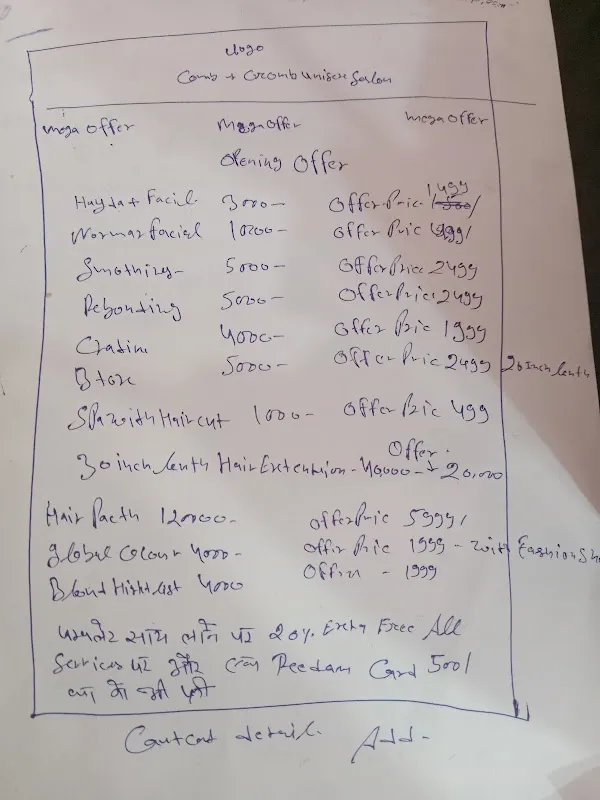 Logo
Comb + Cocomb Unisex Salon
Mega Offer Mega Offer Mega Offer
Opening Offer
Haydat Facil. 3000- Offer Pric 1,499/
Normar facial 1000- Offer Pric 499/
Smothing- 5000- Offer Price 2499
Rebonting 5000- Offer Price 2499
Cratin 4000- Offer Pric 1999
Btox 5000- Offer Pric 2499 20 inch lenth
Spa with Haircut 1000- Offer Pric 499
Offer.
30 inch lenth Hair Extension - 40,000- 20,000
Hair Pacth 12000- offer Pric 5999/
Global Colour 4000- Offer Pric 1999 - with Fashion
4000 Offer - 1999
साथ पर 20% Extra Free All
Services पर और Reedam Card 500/
फ्री
Contcat detail. Add-